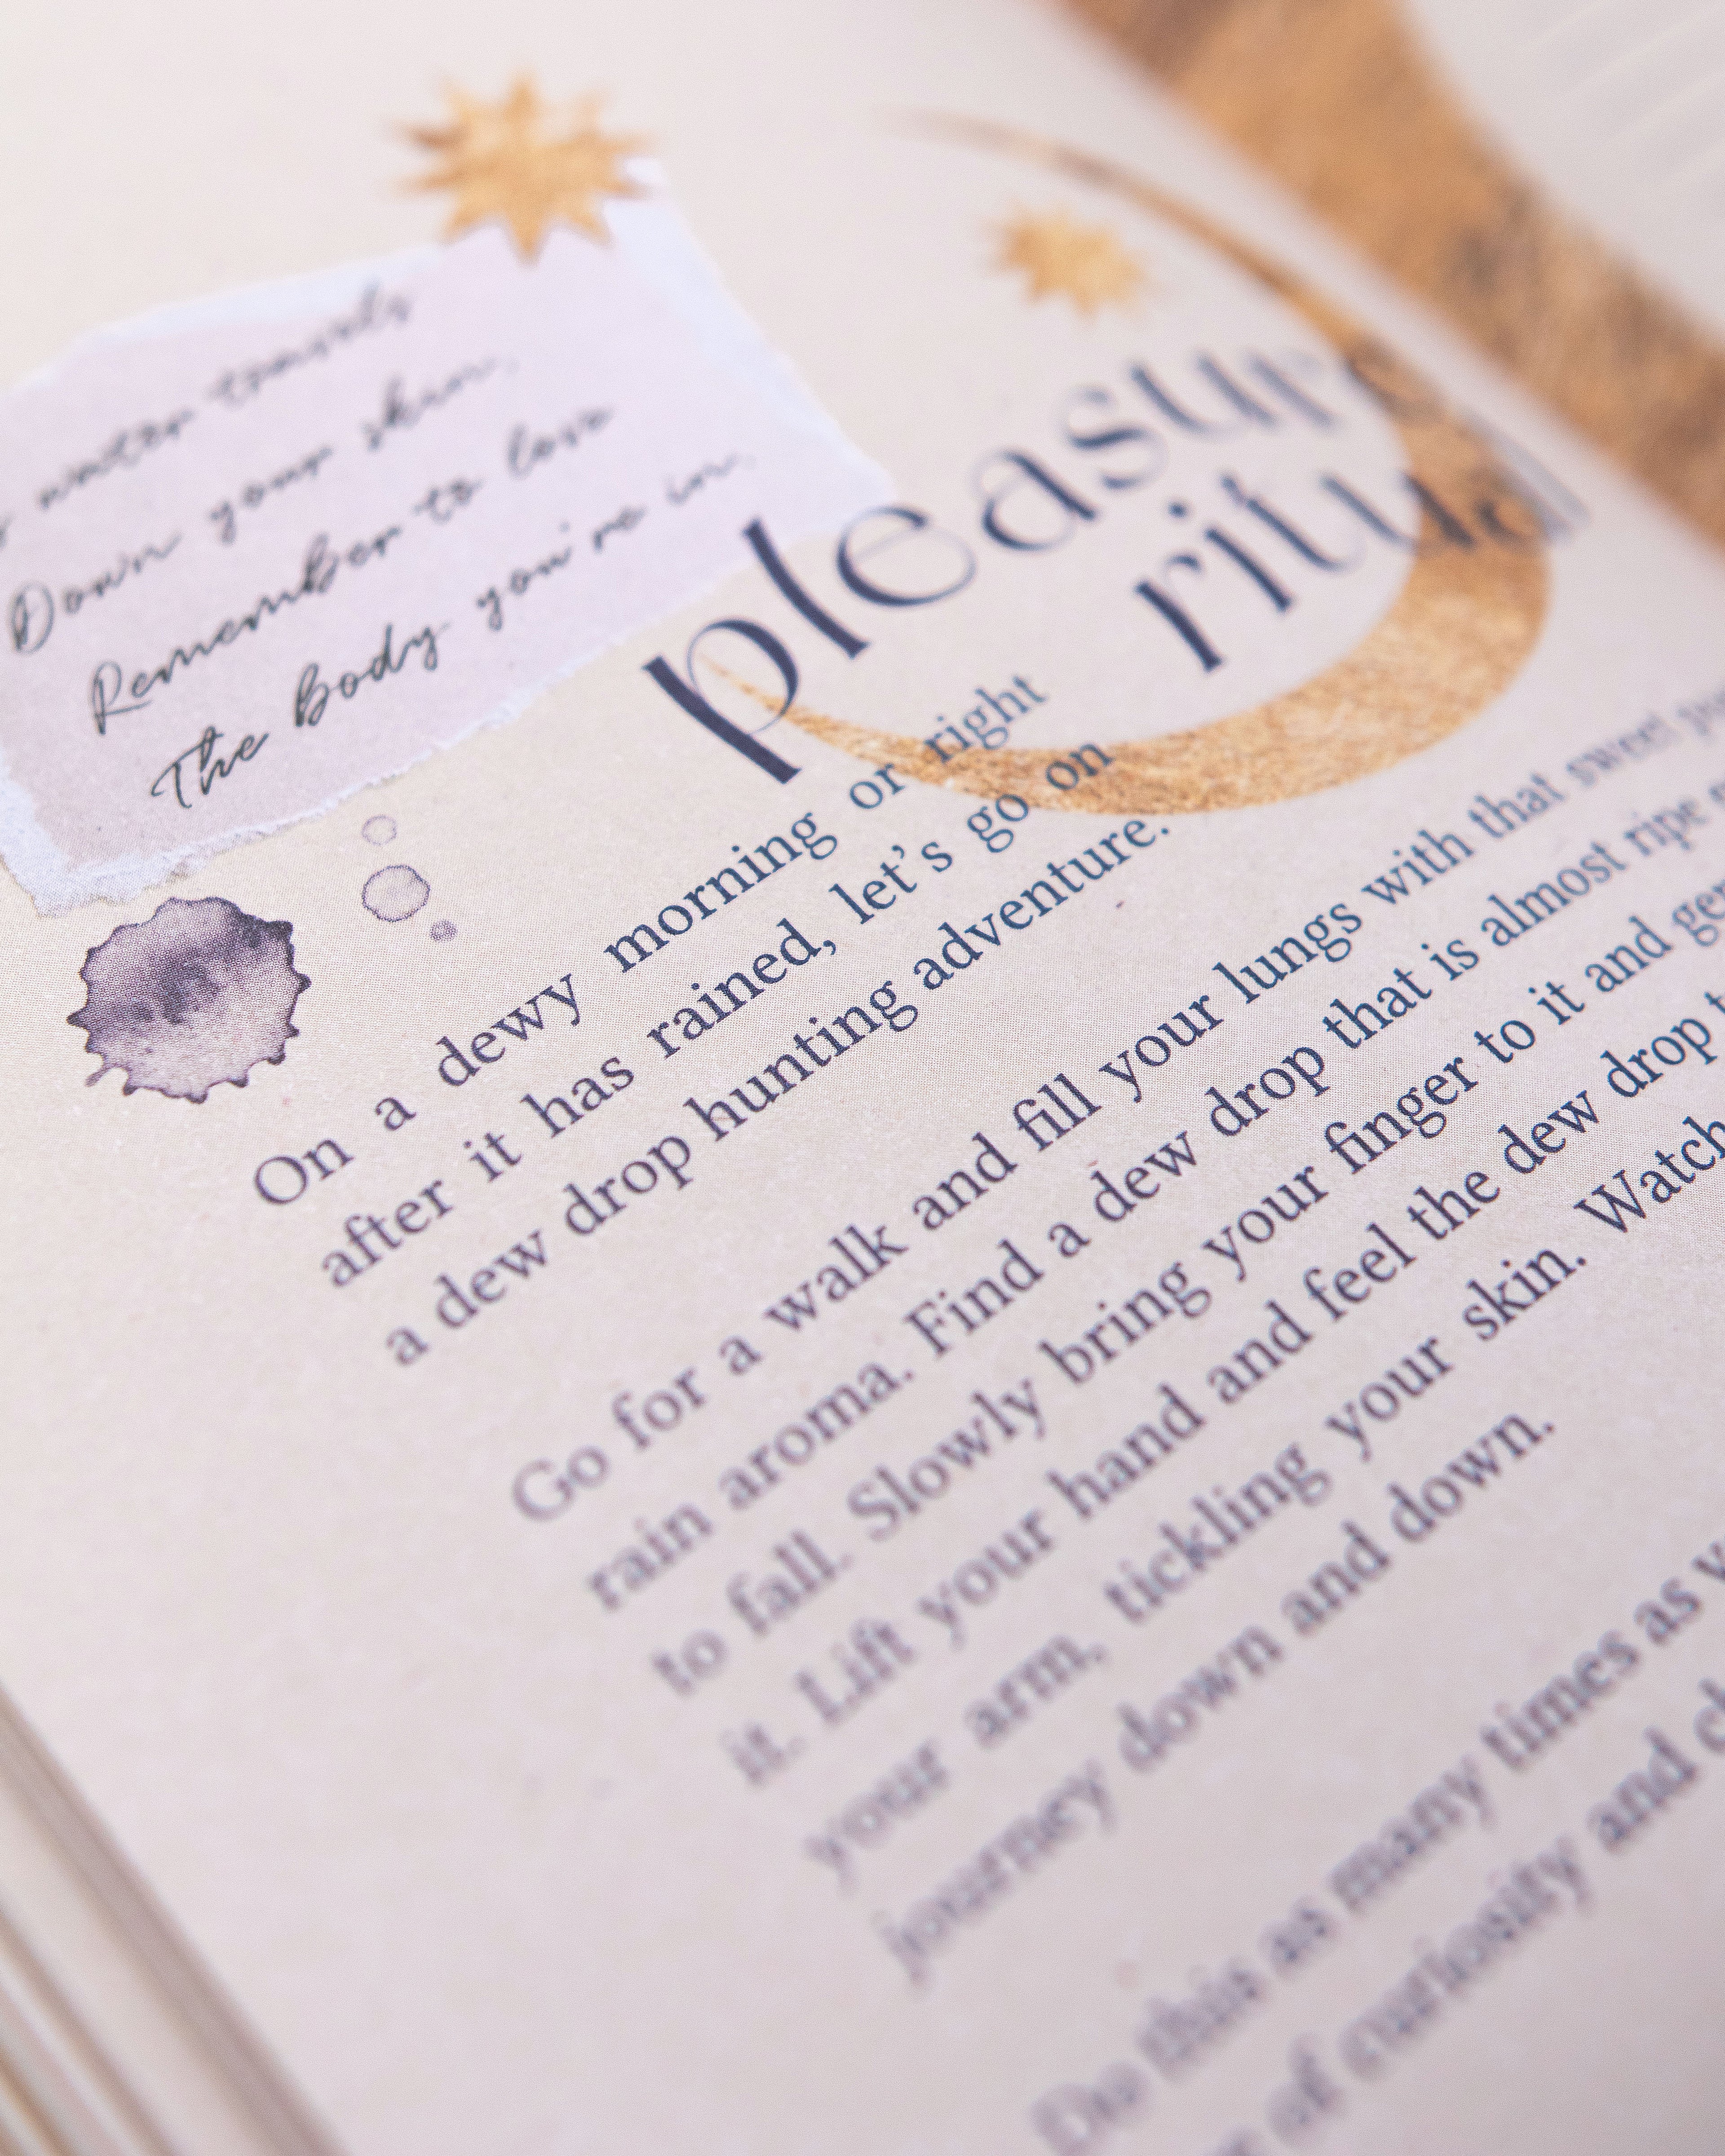 water travels
Down your skin,
Remember to love
The Body you're in.
pleasur
ritual
On a dewy morning or right
after it has rained, let's go on
a dew drop hunting adventure.
Go for a walk and fill your lungs with that sweet
rain aroma. Find a dew drop that is almost ripe
to fall. Slowly bring your finger to it and
it. Lift your hand and feel the dew drop
your arm, tickling your skin. Watch
journey down and down.
Do this as many times as
of curiosity and